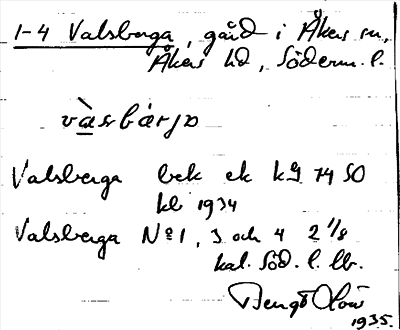 1-4 Valsberga, gård i Åkers sn,
Åkers hd, Söderm. l.
và̲sbárja
Valsberga bek ek kg 74 SO
kb 1934
Valsberga No 1, 3 och 4 2 1/8
kal. Söd. l. lb.
Bengt
1935.